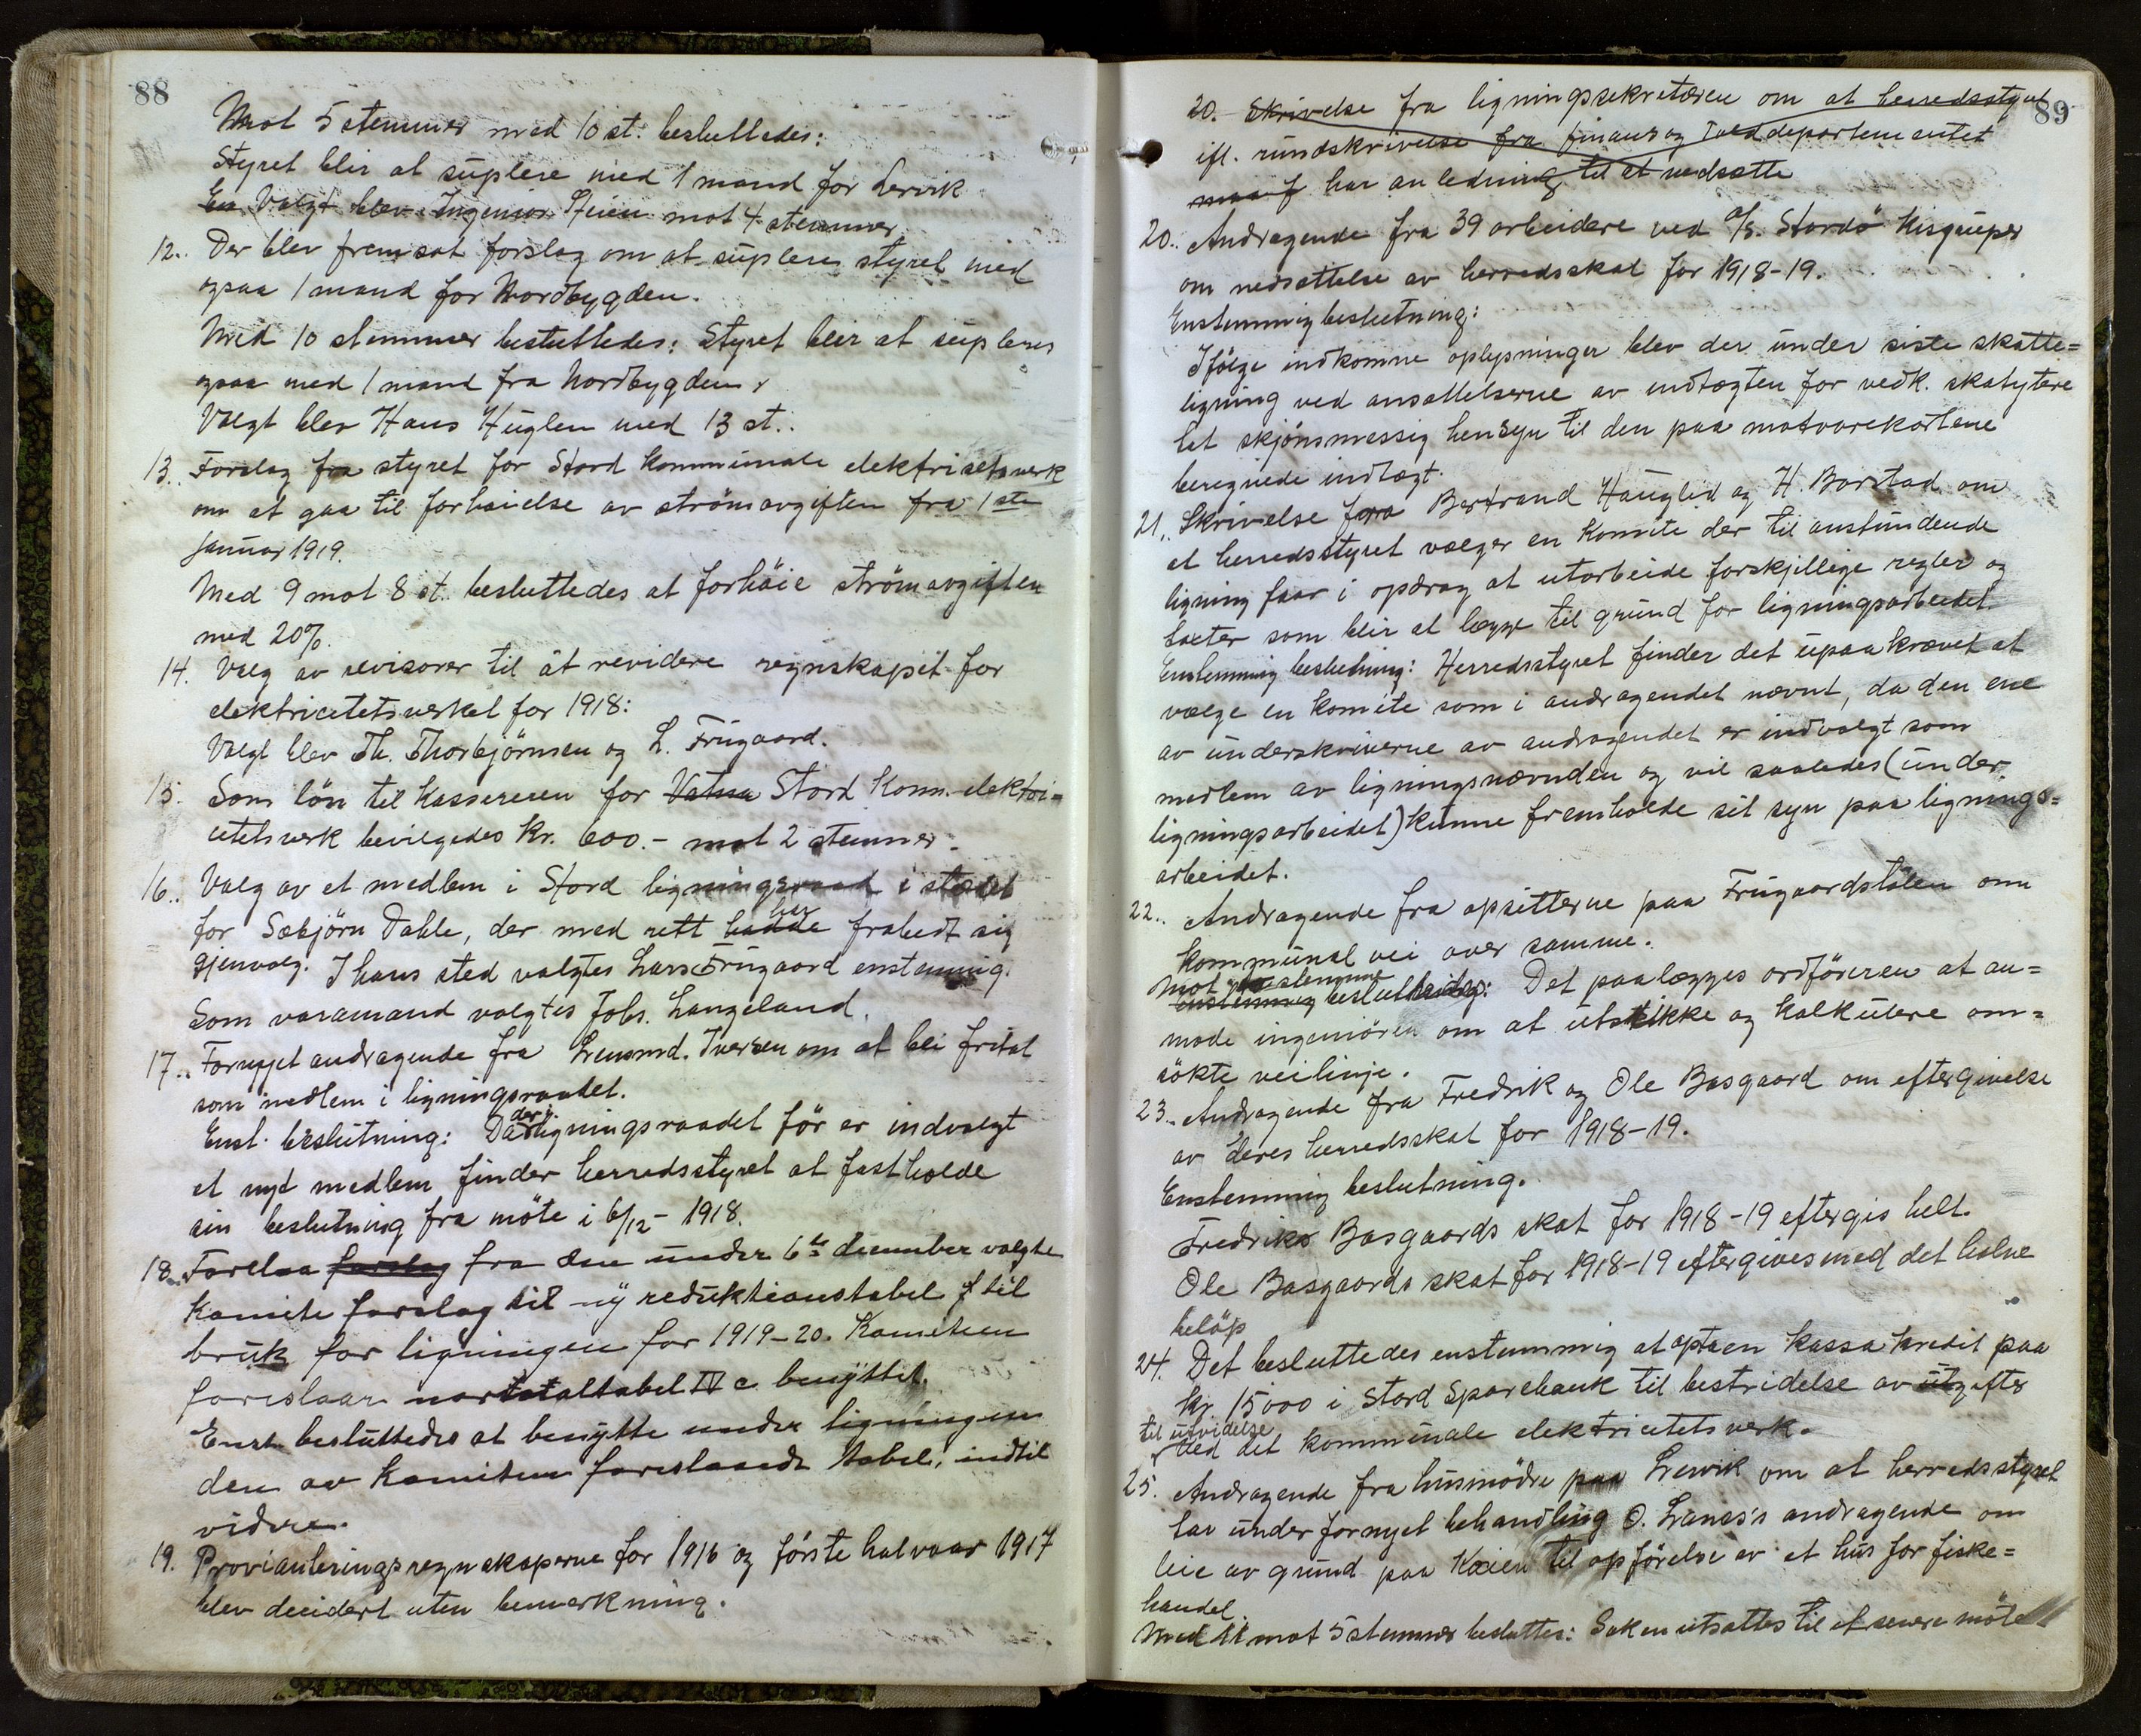 88
Mot 5 stemmer med 10 st. besluttedes:
Styret blir at suplere med 1 mand for Lervik
En Valgt blev Ingeniør Steien mot 4 stemmer
12. Der blev fremsat forslag om at supleres styret med
ogsaa 1 mand for Nordbygden.
Med 10 stemmer besluttedes: Styret blir at supleres
ogsaa med 1 mand fra Nordbygden.
Valgt blev Hans Huglen med 13 st.
13. Forslag fra styret for Stord kommunale elektricitetsverk
om at gaa til forhøielse av strömavgiften fra 1ste
januar 1919.
Med 9 mot 8 st. besluttedes at forhöie strömavgiften
med 20%.
14. Valg av revisorer til at revidere regnskapet for
elektricitetsverket for 1918:
Valgt blev Th. Thorbjörnsen og L. Frugaard.
15. Som lön til Kassereren for Vatna Stord Kom. elektri=
citetsverk bevilgedes kr. 600.- mot 2 stemmer.
16. Valg av et medlem i Stord ligningsraad i stedet
for Sæbjörn Dahle, der med rett hadde har frabedt sig
gjenvalg. I hans sted valgtes Lars Frugaard enstemmig.
Som varamand valgtes Johs. Langeland.
17. Fornyet andragende fra Lensmd. Iversen om at bli fritat
som medlem i ligningsraadet.
Enst. beslutning: Da der i ligningsraadet för er indvalgt
et nyt medlem finder herredsstyret at fastholde
sin beslutning fra möte i 6/12- 1918.
18. Forelaa forslag fra den under 6te december valgte
Komite forslag til ny reduktionstabel til
bruk for ligningen for 1919-20. Komiteen
foreslaar normaltabel IV c benyttet.
Enst. besluttedes at benytte under ligningen
den av Komiteen foreslaaede tabel, indtil
videre.
19. Provianteringsregnskaperne for 1916 og förste halvaar 1917
blev decidert uten bemerkning.
89
20. Skrivelse fra ligningssekretæren om at herredsstyret
ifl. rundskrivelse fra finans og tolddepartementet
maa f har anledning til at nedsætte
20. Andragende fra 39 arbeidere ved A/S. Stordö Kisgruper
om nedsettelse av herredsskat for 1918-19.
Enstemmig beslutning:
Ifölge indkomne oplysninger blev der under siste skatte=
ligning ved ansættelserne av indtægten for vedk. skatytere
tet skjönsmessig hensyn til den paa matvarekortene
beregnede indtægt.
21. Skrivelse fra Bertrand Hauglid og H. Barstad om
at herredsstyret vælger en Komite der til anstundende
ligning faar i opdrag at utarbeide forskjellige regler og
takster som blir at lægge til grund for ligningsarbeidet.
Enstemmig beslutning: Herredsstyret finder det upaakrævet at
vælge en komite som i andragendet nævnt, da den ene
av underskriverne av andragendet er indvalgt som
medlem av ligningsnævnden og vil saaledes (under
ligningsarbeidet) kunne fremholde sit syn paa lignings=
arbeidet.
22. Andragende fra opsitterne paa Frugaardstolen om
kommunal vei over samme.
Mot stemme
Enstemmig besluttedes: Det paalægges ordföreren at an=
mode ingeniören om at utstikke og kalkulere om=
sökte veilinje.
23. Andragende fra Fredrik og Ole Basgaard om eftergivelse
av deres herredsskat for 1918-19.
Enstemmig beslutning.
Fredriks Basgaards skat for 1918-19 eftergis helt.
Ole Basgaards skat for 1918-19 eftergives med det halve
belöp
24. Det besluttedes enstemmig at opta en kassakredit paa
kr 15000 i Stord Sparebank til bestridelse av utgifter
til utvidelse
ved det kommunale elektricitetsverk.
25. Andragende fra husmödre paa Lervik om at herredsstyret
tar under fornyet behandling O. Lanes's andragende om
leie av grund paa Kaien til opförelse av et hus for fiske=
handel.
Med 11 mot 5 stemmer besluttes: Saken utsættes til et senere möte